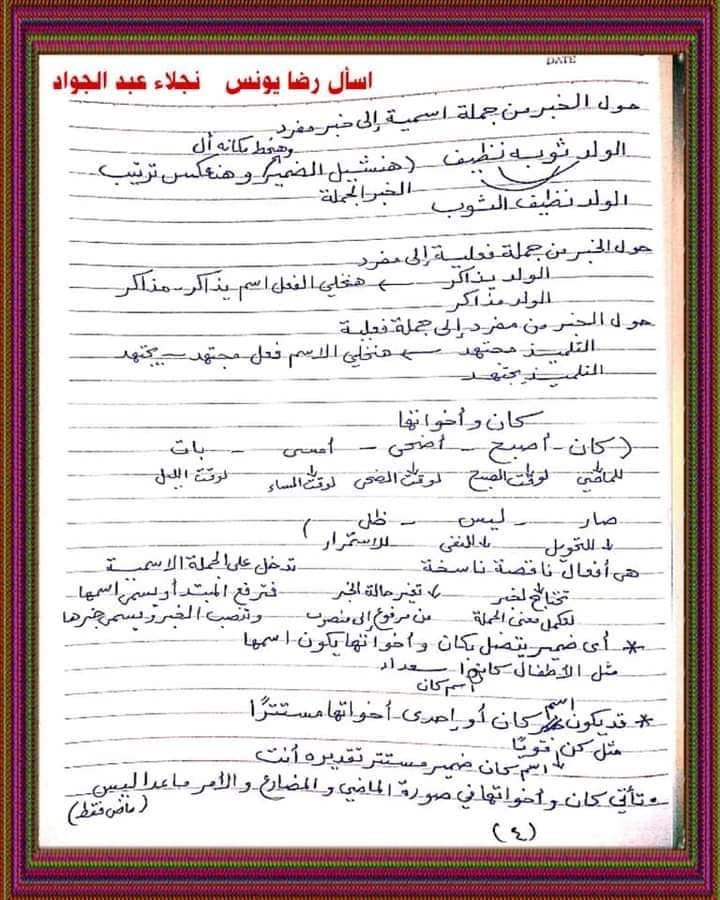 DATE
اسأل رضا يونس نجلاء عبد الجواد
حول الخبر من جملة اسمية إلى خبر مفرد
وهنحط مكانه أل
الولد ثوبه نظيف (هنشيل الضمير وهنعكس ترتيب
الخبر الجملة
الولد نظيف الثوب
حول الخبر من جملة فعلية إلى مفرد
الولد يذاكر ← هنخلي الفعل اسم يذاكر - مذاكر
الولد مذاكر
حول الخبر من مفرد إلى جملة فعلية
التلميذ مجتهد ← هنخلي الاسم فعل مجتهد - يجتهد
التلميذ يجتهد
كان وأخواتها
(كان - أصبح - أضحى - أمسى - بات
للماضي لوقت الصبح لوقت الضحى لوقت المساء لوقت الليل
صار - ليس - ظل
للتحويل للنفى للاستمرار )
هى أفعال ناقصة ناسخة تدخل على الجملة الاسمية
تحتاج لخبر تغير حالة الخبر فترفع المبتدأ ويسمى اسمها
لتكمل معنى الجملة من مرفوع إلى منصوب وتنصب الخبر ويسمى خبرها
* أى ضمير يتصل بكان وأخواتها يكون اسمها
مثل الأطفال كانوا سعداء
اسم كان
* قد يكون اسم كان أو إحدى أخواتها مستترًا
مثل كن قويًا
اسم كان ضمير مستتر تقديره أنت
• تأتي كان وأخواتها في صورة الماضي والمضارع والأمر ماعدا ليس
(ماض فقط)
(٤)